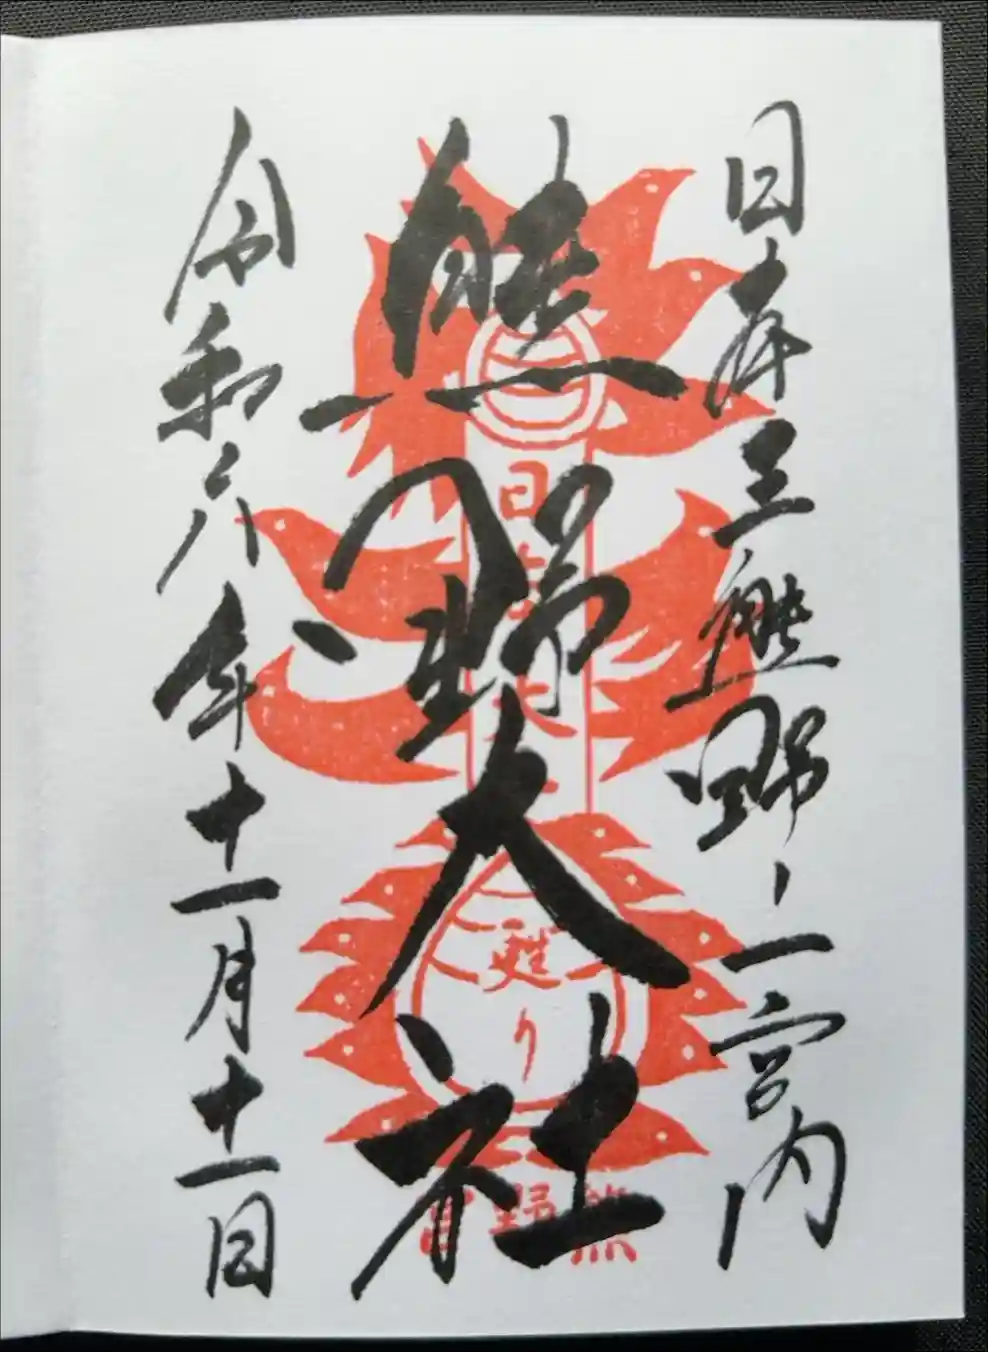 日本三熊野ノ一宮内
熊野大社
日本大
甦り
熊野宮
令和六年十一月十一日